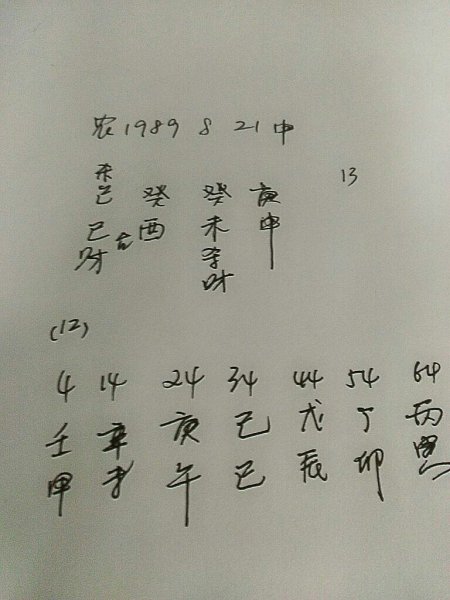 农1989 8 21 申
杀 13
己 癸 癸 庚
巳 合 酉 未 申
财 杀
财
(12)
4 14 24 34 44 54 64
壬 辛 庚 己 戊 丁 丙
申 未 午 巳 辰 卯 寅